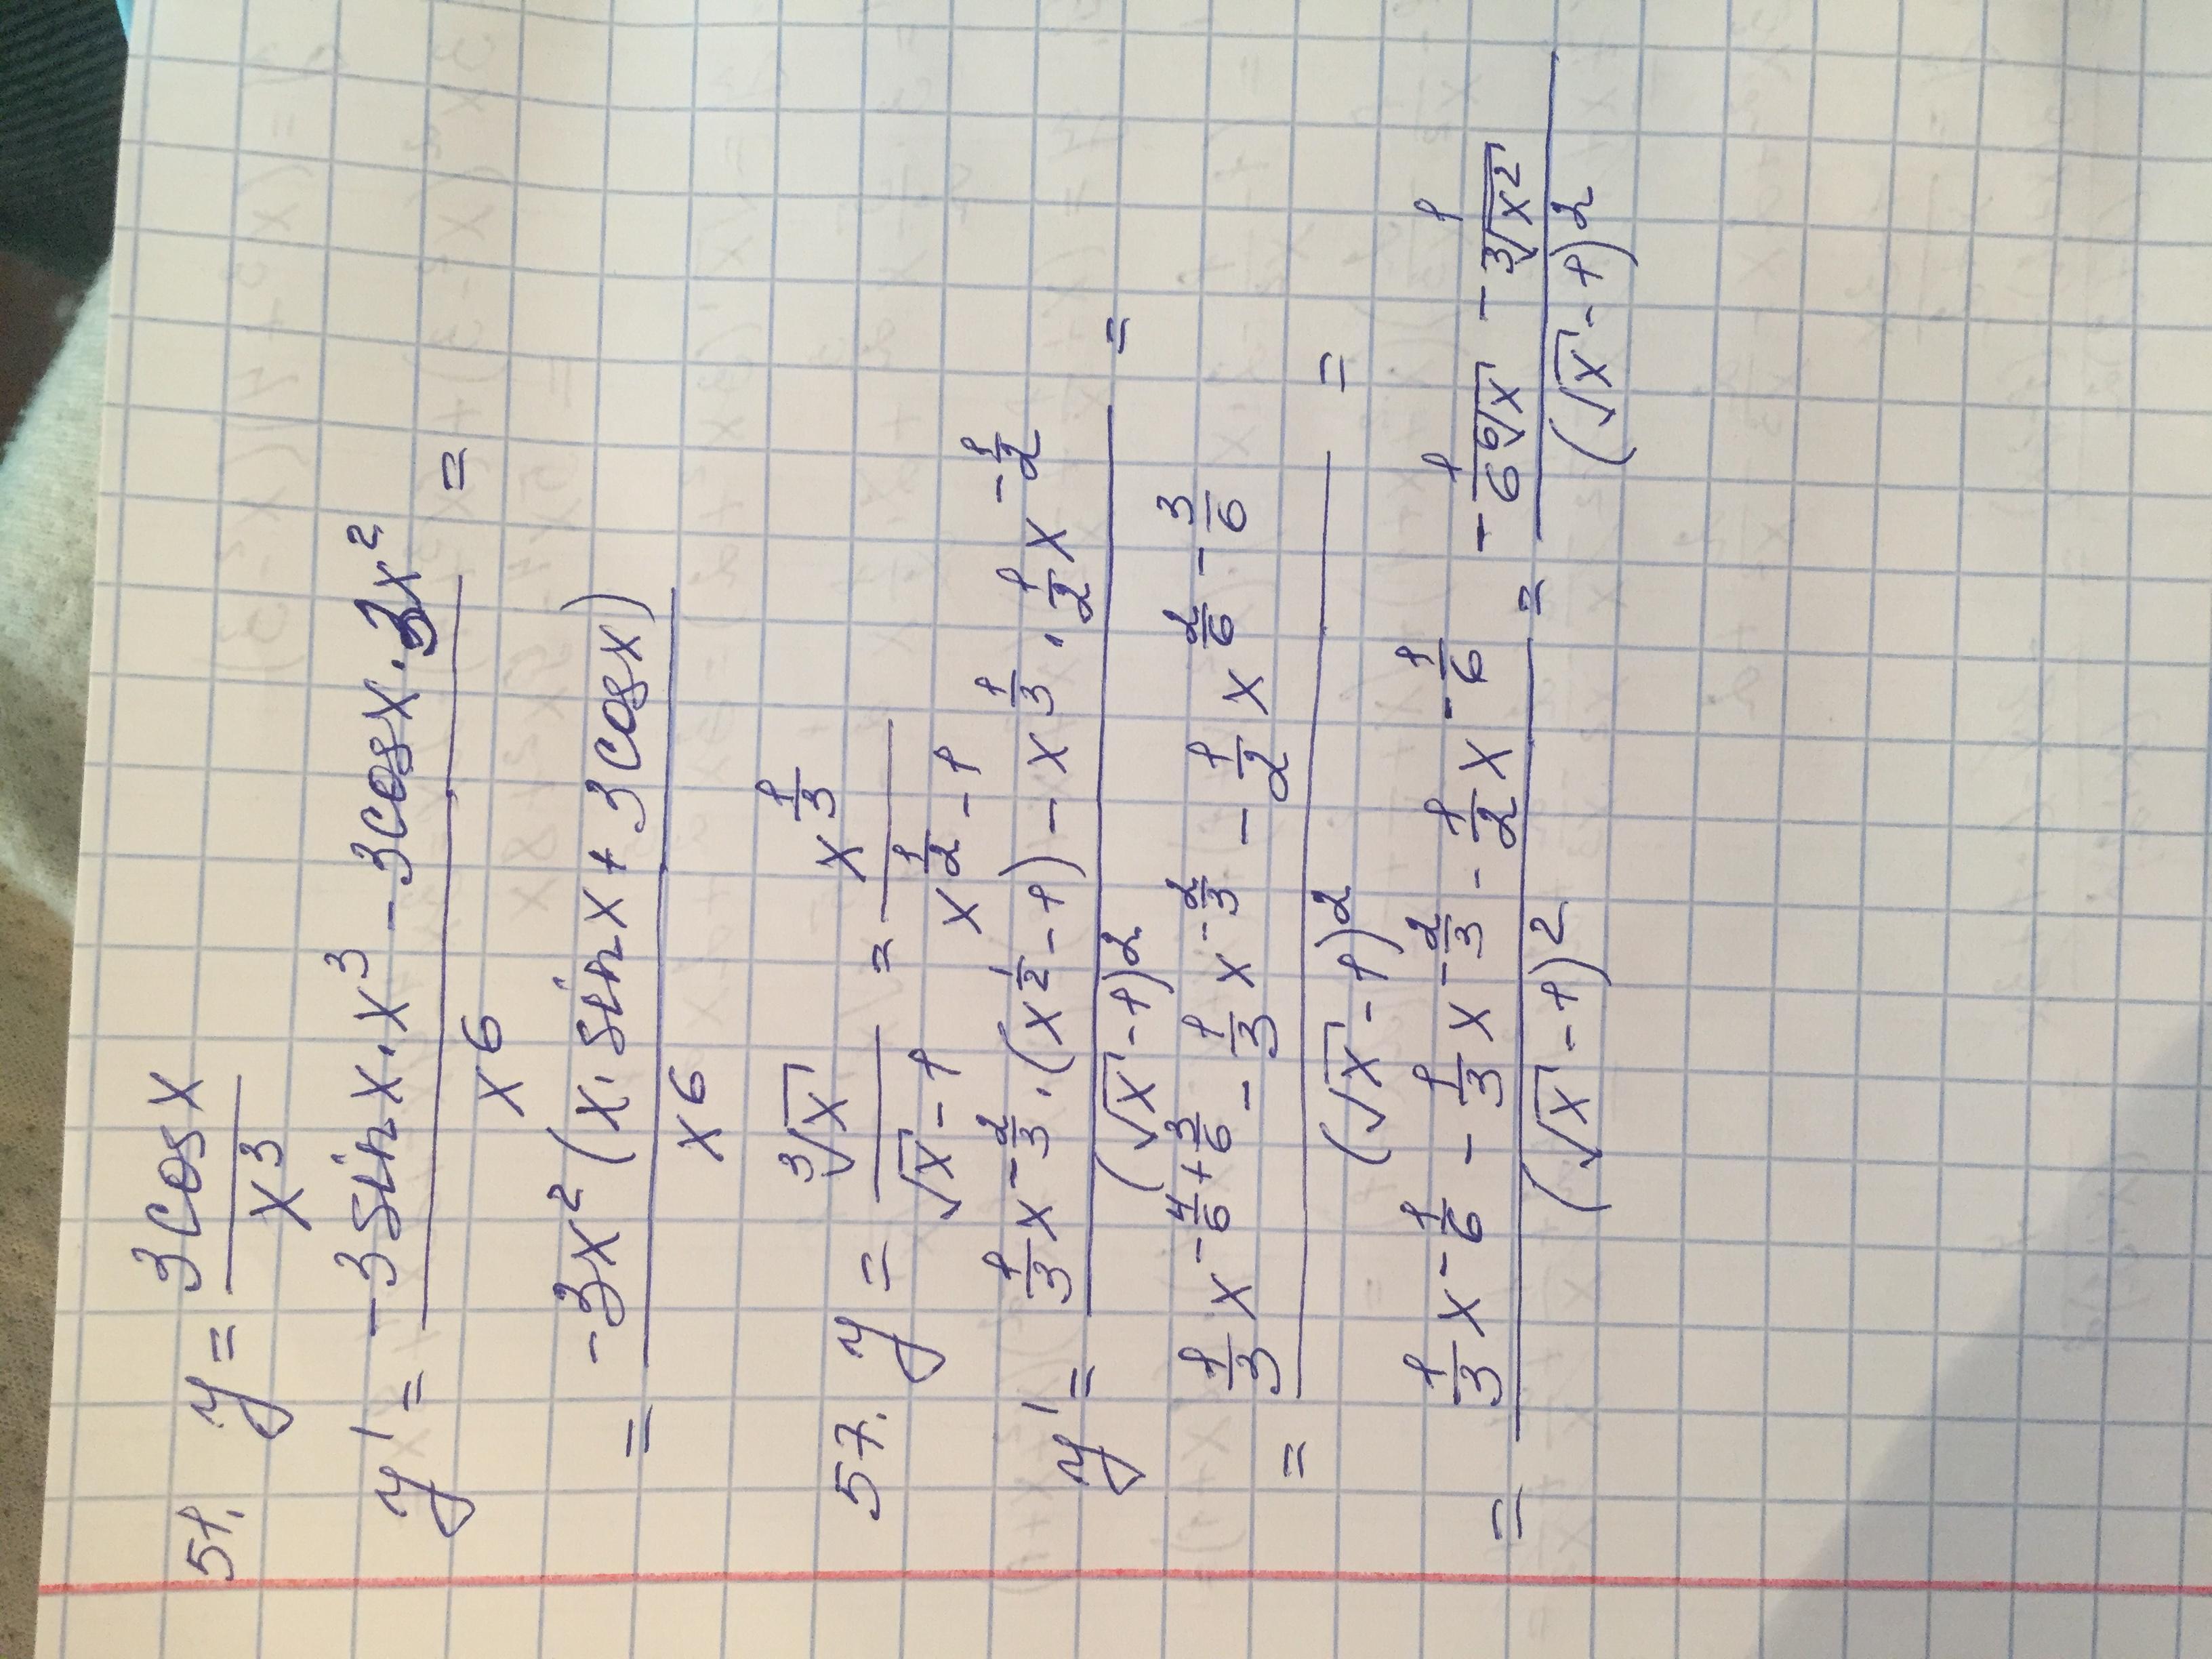 51. y = 3cosx / x³
y' = (-3sinx·x³ - 3cosx·3x²) / x⁶ =
= -3x²(x·sinx + 3cosx) / x⁶
57. y = ∛x / (√x - 1) = x^(1/3) / (x^(1/2) - 1)
y' = (1/3 x^(-2/3)·(x^(1/2) - 1) - x^(1/3)·1/2 x^(-1/2)) / (√x - 1)² =
= (1/3 x^(-4/6+3/6) - 1/3 x^(-2/3) - 1/2 x^(2/6-3/6)) / (√x - 1)² =
= (1/3 x^(-1/6) - 1/3 x^(-2/3) - 1/2 x^(-1/6)) / (√x - 1)² = (-1/(6 ⁶√x) - 1/(3√x²)) / (√x - 1)²